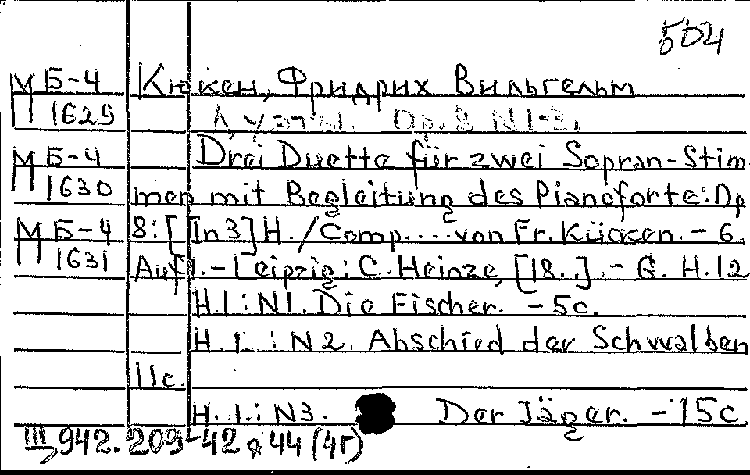 504
М Б-4 Кюкен, Фридрих Вильгельм
П 1629 Дуэты. Op. 8 N 1-3.
М Б-4 Drei Duette für zwei Sopran-Stim
П 1630 men mit Begleitung des Pianoforte: Op
М Б-4 8: [In 3] H. / Comp.... von Fr. Kücken. - 6.
П 1631 Aufl. - Leipzig: C. Heinze, [18..]. - G. H. 12
H. 1.: N1. Die Fischer. - 5c.
H. 1.: N2. Abschied der Schwalben
11c.
H. 1.: N3. Der Jäger. - 15c
III, 942. 209-42 44 (4г)